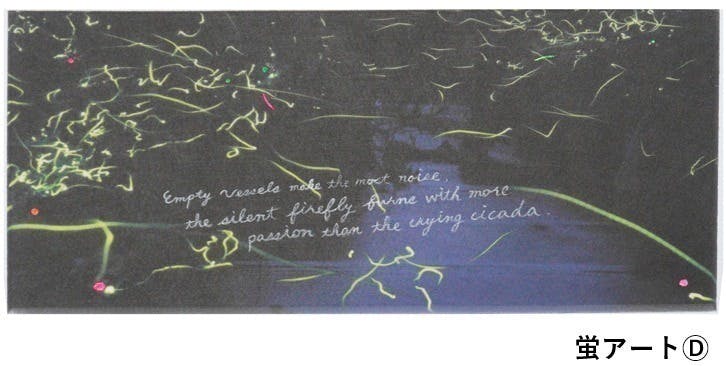 Empty vessels make the most noise,
the silent firefly burns with more
passion than the crying cicada.
蛍アートⒹ